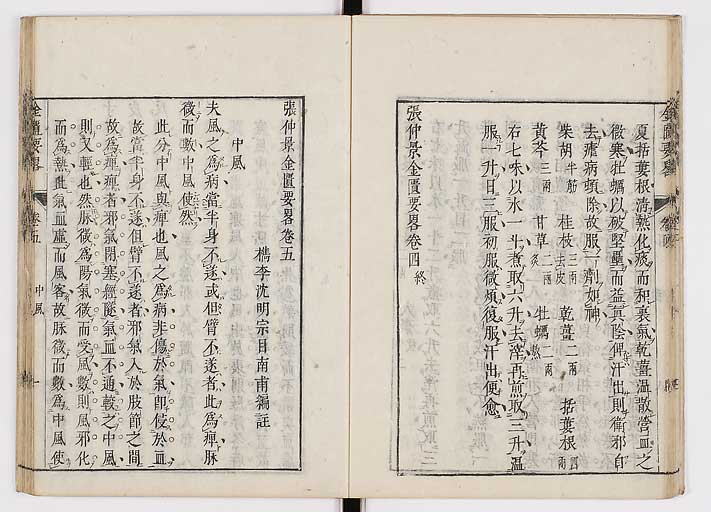 夏括蔞根清熱化痰而和裏氣乾薑溫散營血之
微寒牡蠣以破堅壘而益真陰俾汗出則衛邪自
去瘧病頓除故服一劑如神
柴胡半觔 桂枝三兩去皮 乾薑二兩 括蔞根四兩
黃芩三兩 甘草二兩炙 牡蠣二兩熬
右七味以水一斗煮取六升去滓再煎取三升溫
服一升日三服初服微煩後服汗出便愈
張仲景金匱要畧卷四終
張仲景金匱要畧卷五
檇李沈明宗目南甫編註
中風
夫風之為病當半身不遂或但臂不遂者此為痺脉
微而數中風使然
此分中風與痺也風之為病非傷於氣卽侵於血
故當半身不遂但臂不遂者邪氣入於肢節之間
故為痺痺者邪氣閉塞經隧氣血不通較之中風
則又輕也然脉微為陽氣微而受風數則風邪化
而為熱此氣血虛而風客故脉微而數為中風使
金匱要畧 卷五 中風 一